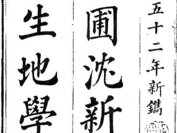 五十二年新鐫
圃沈新
生地學